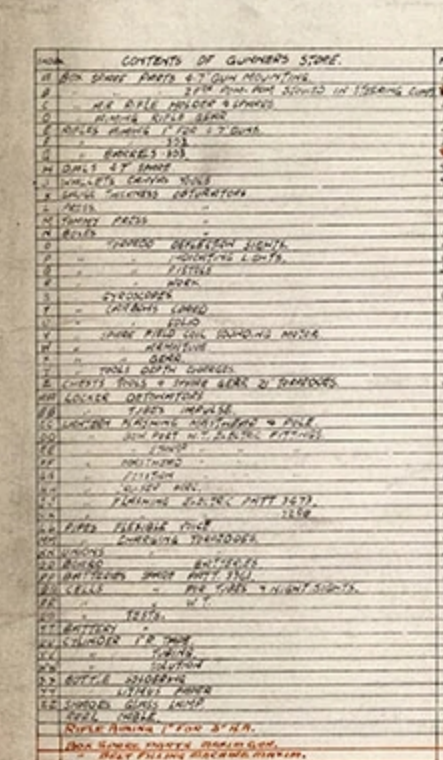 INDEX CONTENTS OF GUNNERS STORE.
A BOX SPARE PARTS 4.7" GUN MOUNTING.
B " " " 2 PDR POM-POM STOWED IN STEERING COMPT
C " H.A RIFLE HOLDER & SPARES
D " AIMING RIFLE GEAR
E RIFLES AIMING 1" FOR 4.7 GUNS.
F " " .303
G " BARRELS .303
H DIALS 4.7" SPARE
J WALLETS CANVAS TOOLS
K GAUGE THICKNESS OBTURATORS
L PRESS "
M TOMMY PRESS "
N BOXES
O " TORPEDO DEFLECTION SIGHTS.
P " " INDICATING LIGHTS.
Q " " PISTOLS
R " " WORK
S " GYROSCOPES
T " CARBONS CORED
U " " SOLID
V " SPARE FIELD COIL SOUNDING MOTOR
W " " ARMATURE
X " " GEAR.
Y " TOOLS DEPTH CHARGES.
Z CHESTS TOOLS & SPARE GEAR 21" TORPEDOES.
AA LOCKER DETONATORS
BB " TUBES IMPULSE.
CC LANTERN FLASHING MASTHEAD & POLE
DD " BOW PORT N.T. ELECTRIC FITTINGS.
EE " " " " "
FF " MASTHEAD
GG " POSITION
HH "
JJ " FLASHING ELECTRIC PATT 3673,
K " "
LL PIPES FLEXIBLE
MM " CHARGING TORPEDOES.
NN UNIONS " "
OO BOARD BATTERIES
PP BATTERIES SPARE PATT
QQ CELLS " FOR TUBES & NIGHT SIGHTS.
RR " " W.T.
SS " TESTS.
TT BATTERY "
UU CYLINDER I.R. TAPE.
VV " TUBING.
WW " SOLUTION
XX BOTTLE SOLDERING
YY " LITMUS PAPER
ZZ SHADES GLASS LAMP
REEL CABLE.
RIFLE AIMING 1" FOR 3" H.A.
BOX SPARE PARTS MAXIM GUN.
" BELT FILLING MACHINE MAXIM.